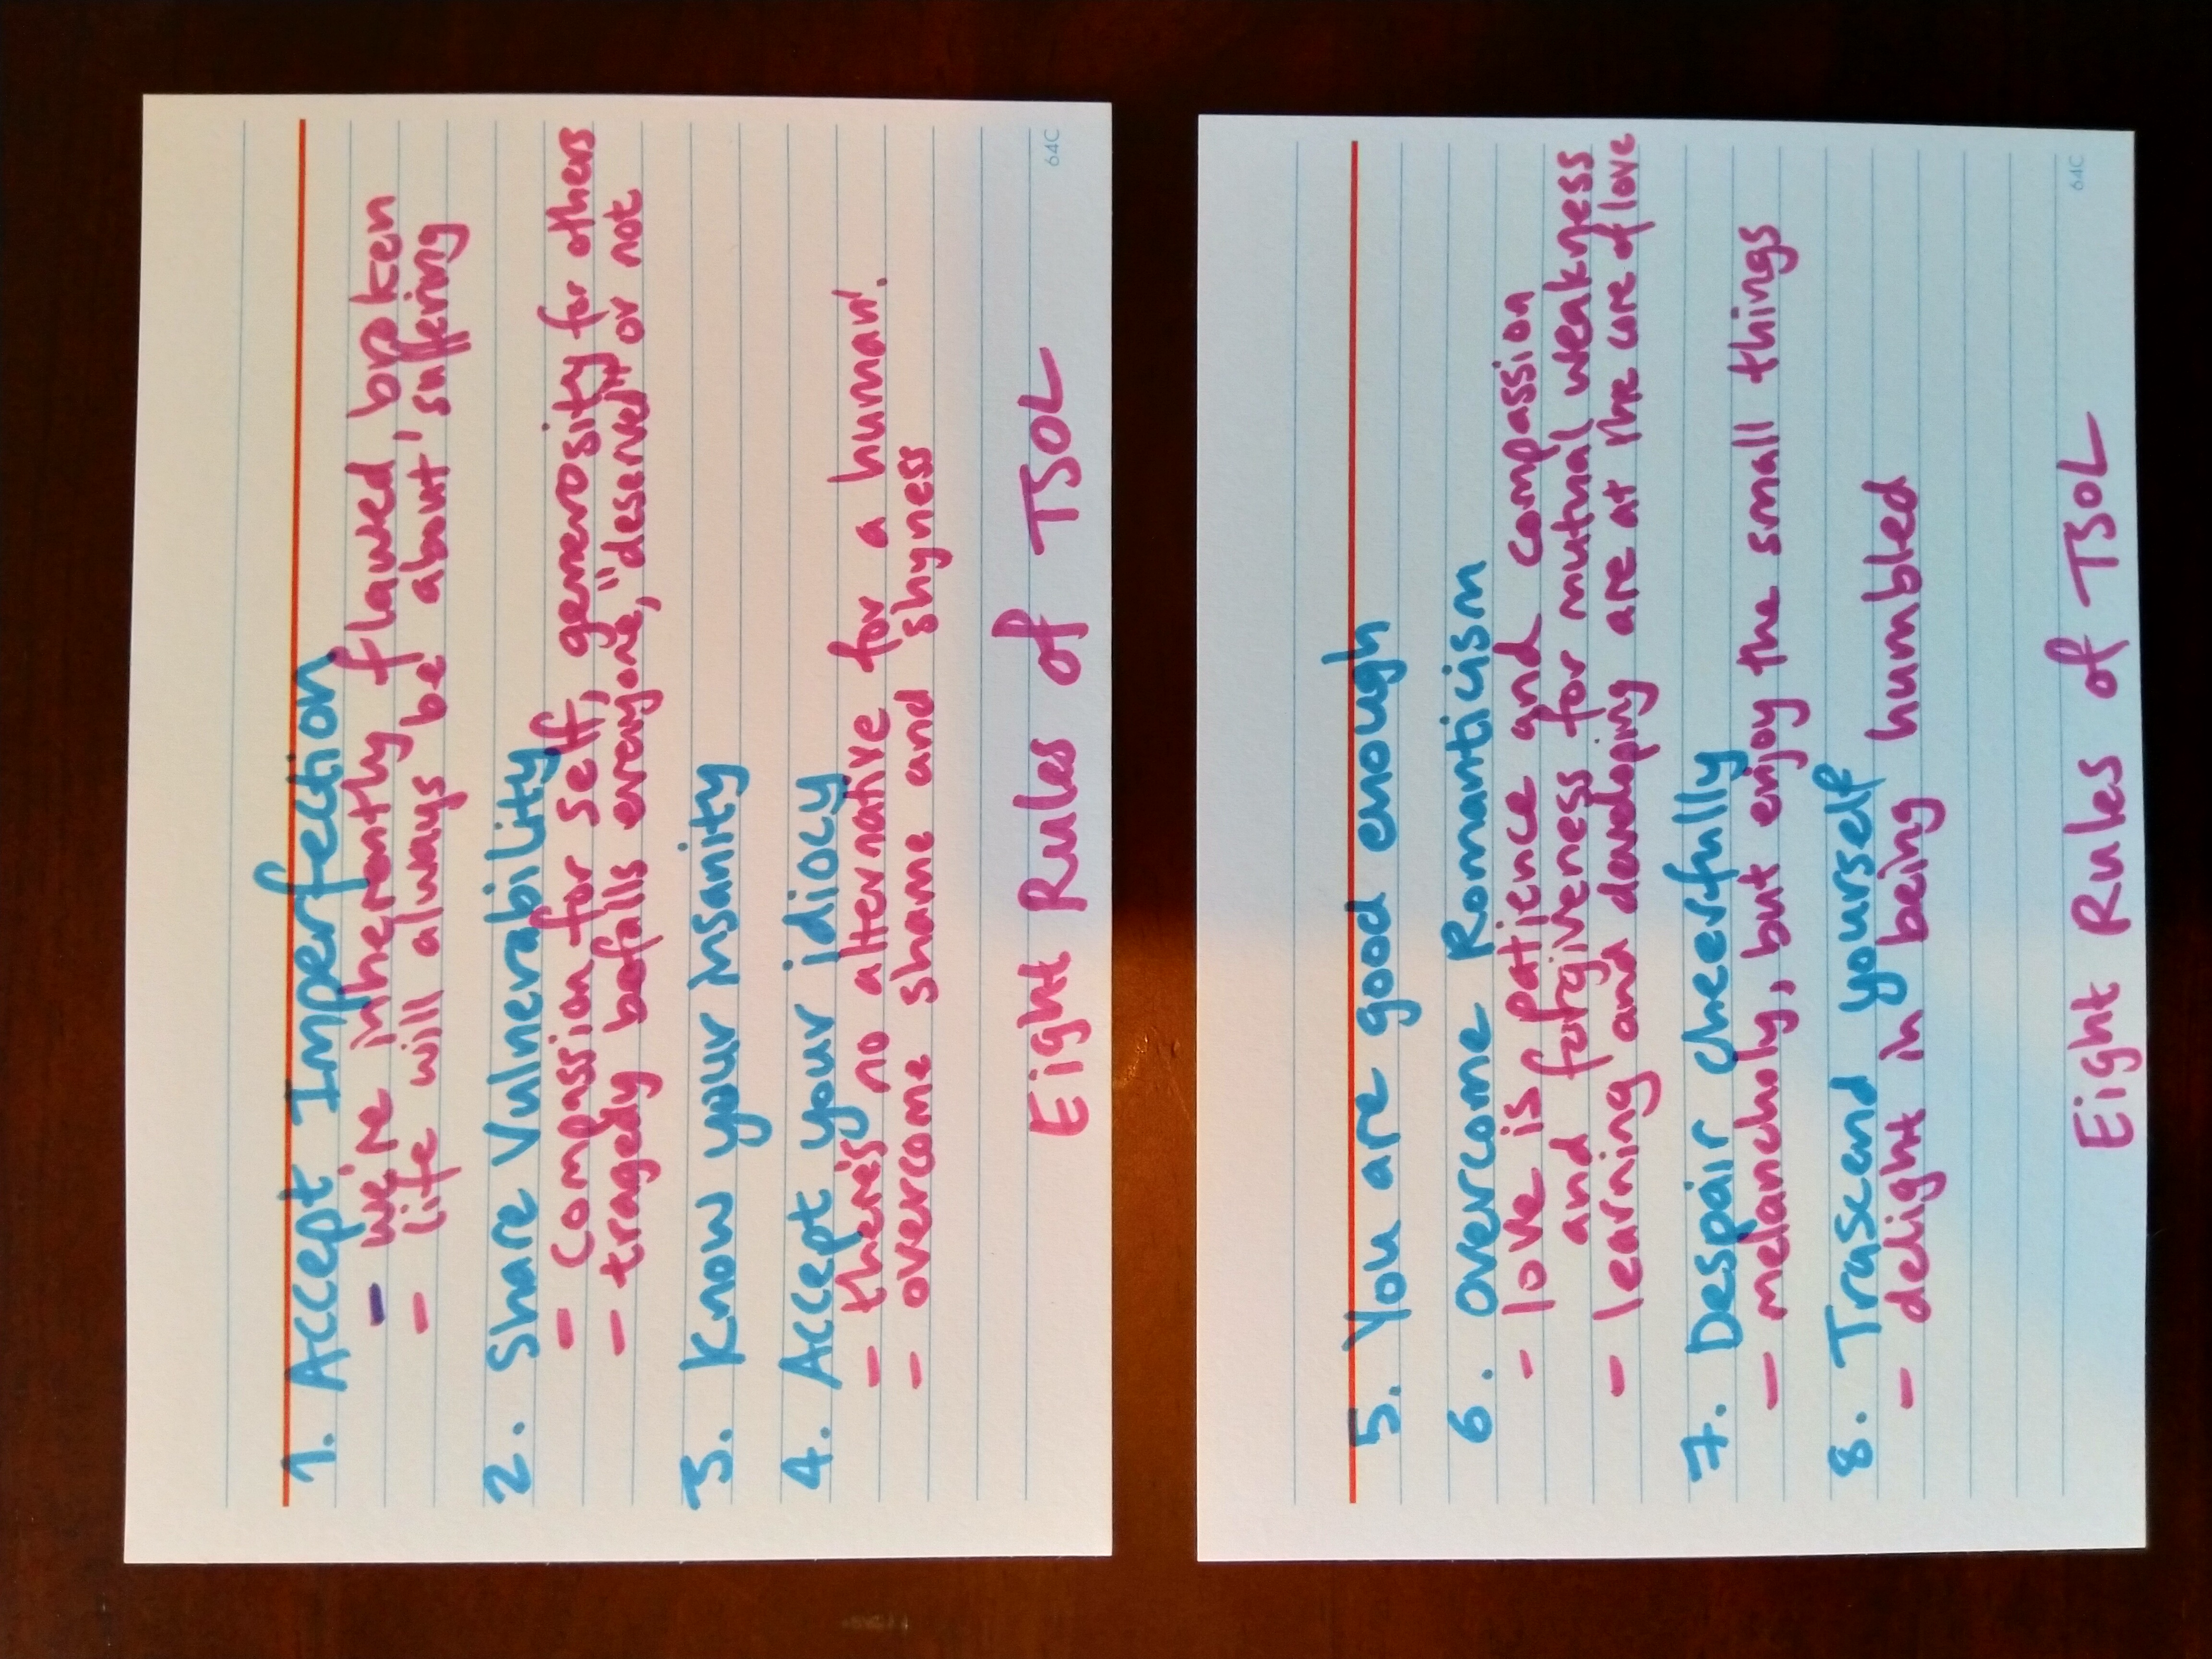 1. Accept Imperfection
- we're inherently flawed, broken
- life will always be about suffering
2. Share Vulnerability
- Compassion for self, generosity for others
- tragedy befalls everyone, "deserved" or not
3. Know your insanity
4. Accept your idiocy
- there's no alternative for a human.
- overcome shame and shyness
Eight Rules of TSOL
64C
5. You are good enough
6. overcome Romanticism
- love is patience and compassion
and forgiveness for mutual weakness
- learning and developing are at the core of love
7. Despair cheerfully
- melancholy, but enjoy the small things
8. Trascend yourself
- delight in being humbled
Eight Rules of TSOL
64C